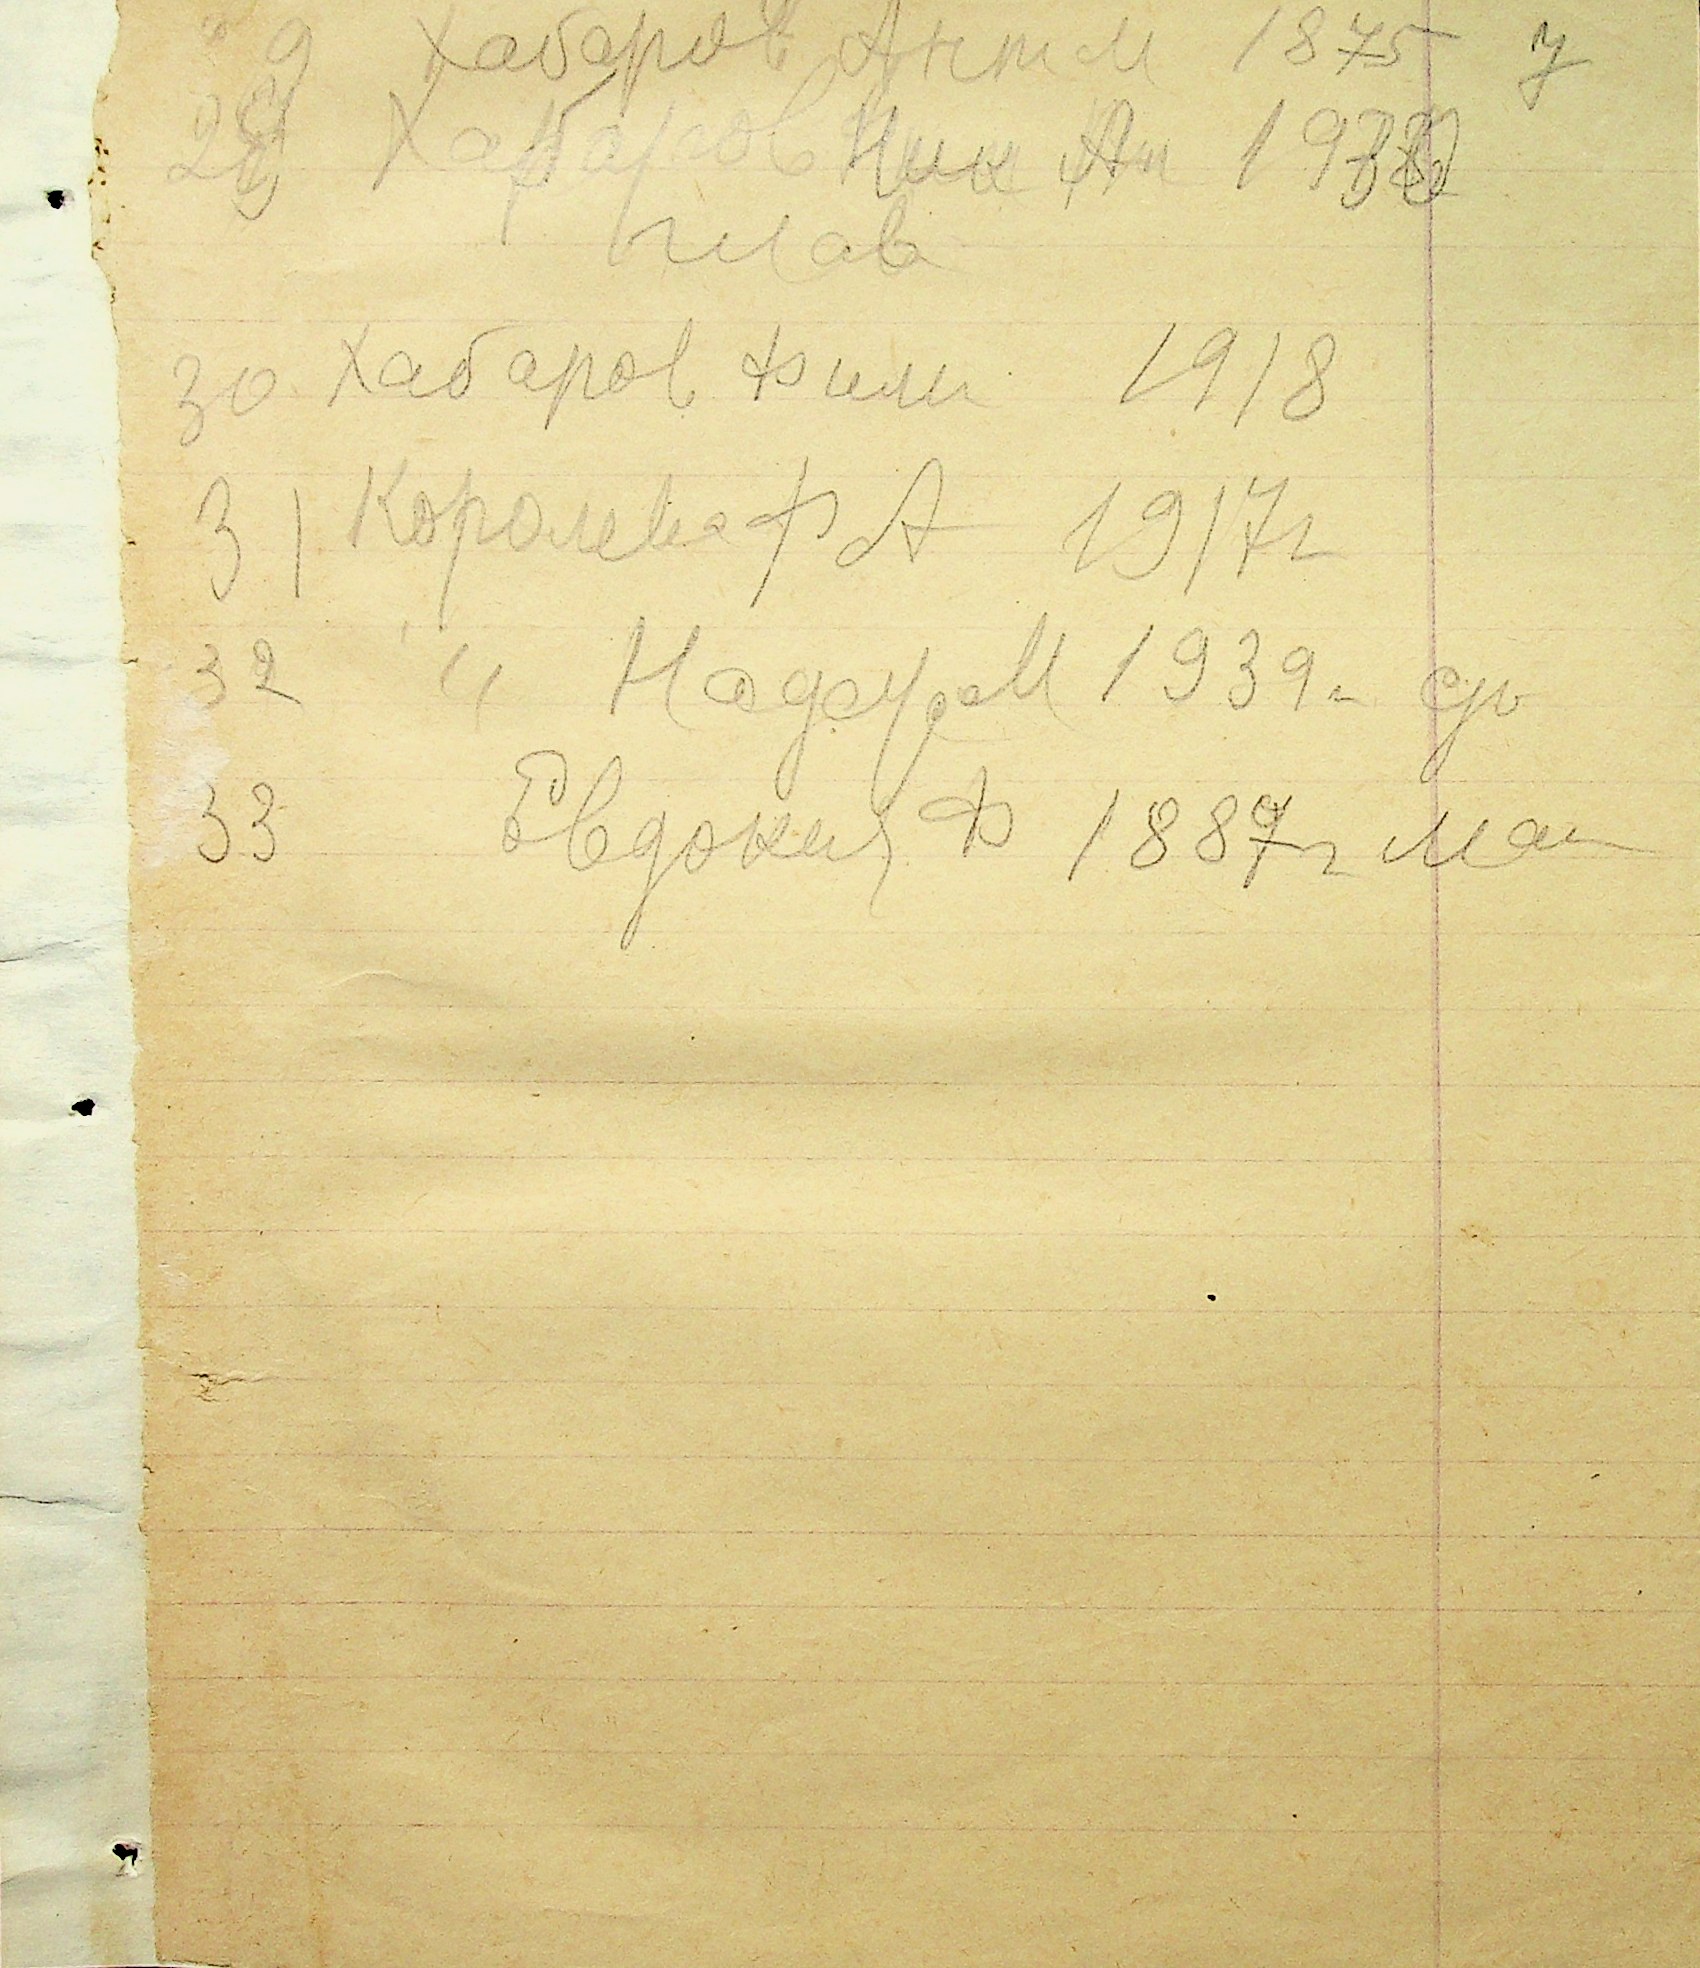 9 Хабаров Ант М 1875 у
Хабаров Ник Ан
глав
30 Хабаров Фили 1918
31 Королева Ф А 1917г
32 " М 1939г
33 Евдокия Ф 1887г